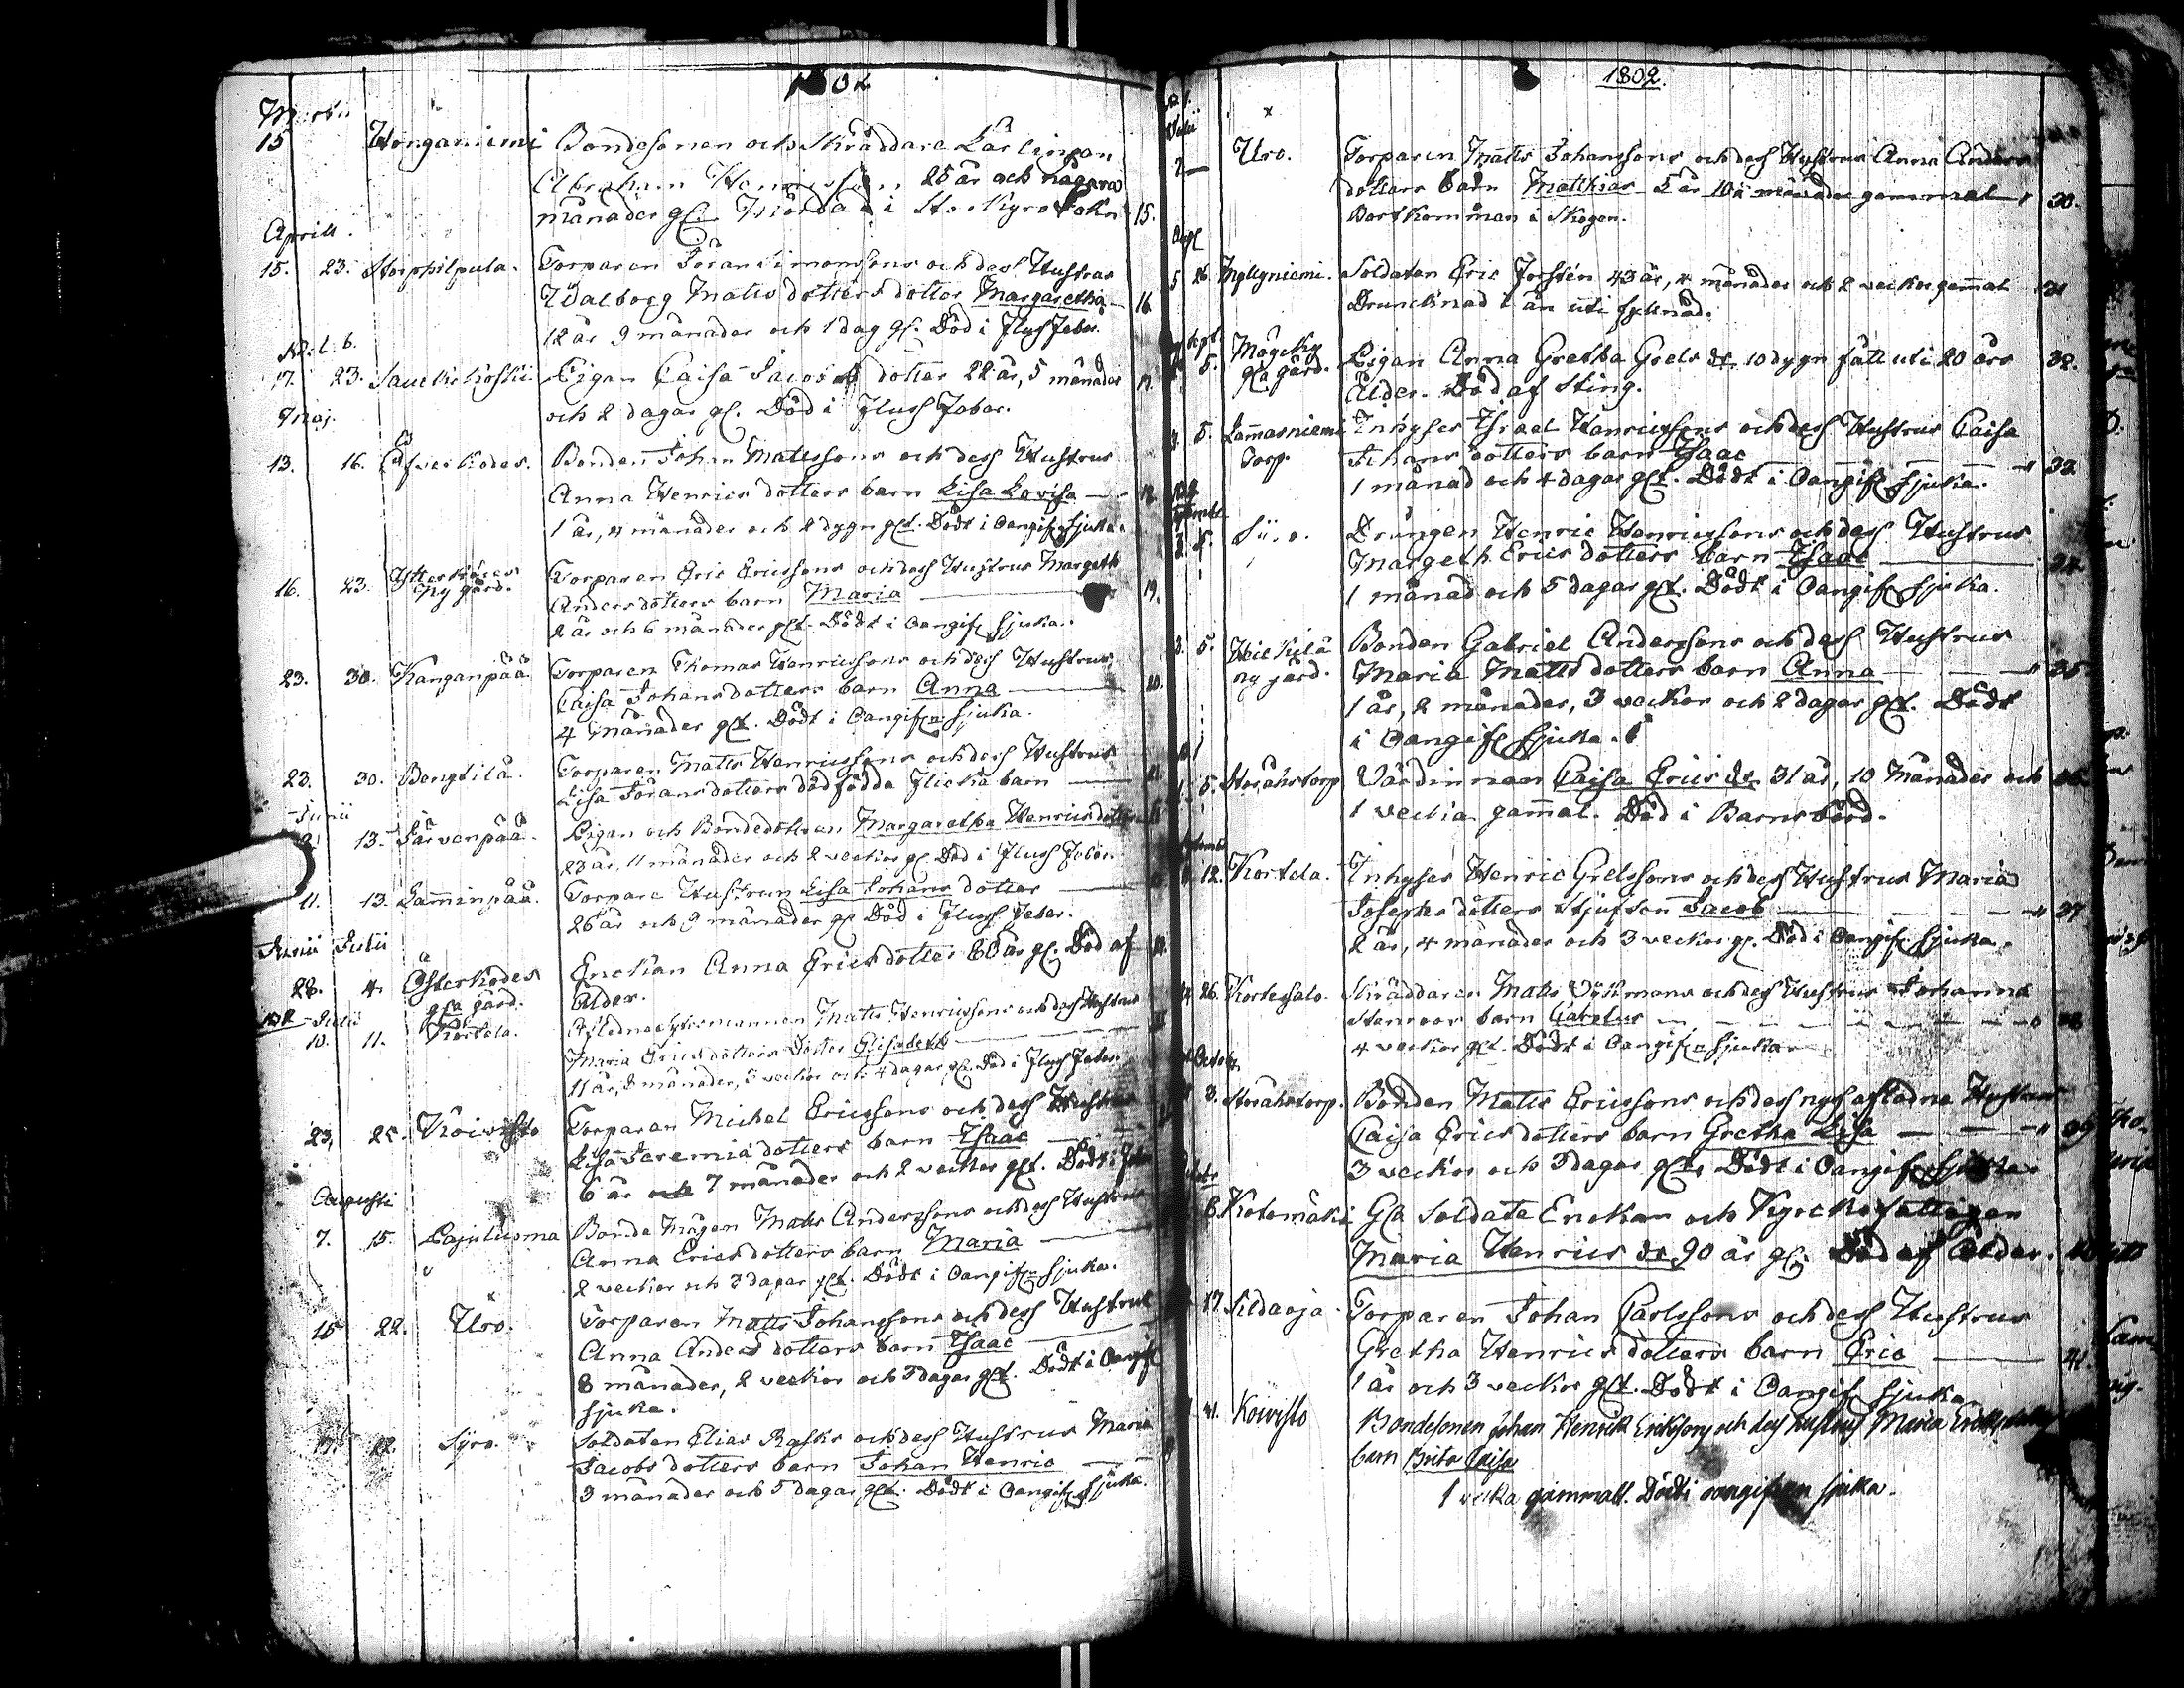 1802
Martii
15 Honganiemi Bondesonen och Skräddare Lärlingen
Abraham Henricsson 25 år och några
månader gl. i Storkyro Sokn 15.
Aprill.
15. 23. Storpilpula. Torparen Jöran Simonsons och dess Hustrus
Walborg Matts dotters dotter Margaretha 16
12 år 9 månader och 1 dag gl. Död i Fluss Feber.
17. 23. Sauckikoski Pigan Caisa Jacobs dotter 22 år, 5 månader 17.
och 2 dagar gl. Död i Fluss Feber.
Maj.
13. 16. Bonden Johan Mattssons och dess Hustrus
Anna Henrics dotters barn Lisa Lovisa 18.
1 år, 4 månader och 2 dygn glt. Dödt i Oangifn Sjuka.
16. 23. Ny gård. Torparen Eric Ericssons och dess Hustrus Margeth
Anders dotters barn Maria 19.
2 år och 6 månader glt. Dödt i Oangifn Sjuka.
23. 30. Kanganpää Torparen Thomas Henricssons och dess Hustrus
Caisa Johans dotters barn Anna 20.
4 månader glt. Dödt i Oangifn Sjuka.
23. 30. Bengtilä. Torparen Matts Henricssons och dess Hustrus
Lisa Jörans dotters dödfödda Flicka barn
Junii
13. Järvenpää. Pigan och Bondedottren Margaretha Henrics dotter
23 år, 11 månader och 2 veckor gl. Död i Fluss Feber.
11. 13. Lamminpää. Torpare Hustrun Lisa Johans dotter
26 år och 9 månader gl. Död i Fluss Feber.
Junii Julii
28. 4. Österkodes Enckan Anna Erics dotter 60 år gl. Död af
gla gård. Ålder.
Julii
10. 11. Kortela. Matts Henricssons och dess Hustrus
Maria Erics dotters Dotter Elisabeth
11 år, 8 månader, 3 veckor och 4 dagar gl. Död i Fluss Feber.
23. 25. Koivisto Torparen Michel Ericssons och dess Hustrus
Lisa Jeremiä dotters barn Isaac
6 år och 7 månader och 2 veckor glt. Dödt i Feber
Augusti
7. 15. Pajuluoma Bonde Mågen Matts Anderssons och dess Hustrus
Anna Erics dotters barn Maria
2 veckor och 3 dagar glt. Dödt i Oangifn Sjuka.
15 22. Uro. Torparen Matts Johanssons och dess Hustrus
Anna Anders dotters barn Isaac
8 månader, 2 veckor och 3 dagar glt. Dödt i Oangifn
Sjuka.
Syro. Soldaten Elias Rasks och dess Hustrus Maria
Jacobs dotters barn Johan Henric
3 månader och 5 dagar glt. Dödt i Oangifn Sjuka.
1802.
Julii
2 Uro. Torparen Matts Johanssons och dess Hustrus Anna Anders
dotters barn Matthias 5 år 10 månader gammal 30.
Bortkommen i Skogen.
Aug
5 26. Soldaten Eric Forstén 43 år, 4 månader och 2 veckor gammal 31
Druncknad i ån uti fyllnad.
5. Mägeky Pigan Anna Gretha Grels dr. 10 dygn fätt uti 20 års 32.
gla gård. Ålder. Död af Sting.
5. Lammasniemi Inhyses Israel Henricssons och dess Hustrus Caisa
Torp. Johans dotters barn Isaac 33
1 månad och 4 dagar glt. Dödt i Oangifn Sjuka.
5. Drängen Henric Henricssons och dess Hustrus
Margeth Erics dotters barn Isaac 34.
1 månad och 5 dagar glt. Dödt i Oangifn Sjuka.
3. 5. Heickilä Bonden Gabriel Anderssons och dess Hustrus
ny gård. Maria Matts dotters barn Anna 35
1 år, 2 månader, 3 veckor och 2 dagar glt. Dödt
i Oangifn Sjuka.
5. Storåhstorp Värdinnan Caisa Erics dr. 31 år, 10 Månader och 36
1 vecka gammal. Död i Barnsbörd.
12. Kortela. Inhyses Henric Grelssons och dess Hustrus Maria
Josephs dotters Stjufson Jacob 37
2 år, 4 månader och 3 veckor gl. Död i Oangifn Sjuka.
26. Kortesalo. Skräddaren Matts och dess Hustrus Johanna
barn Carolus 38
4 veckor glt. Dödt i Oangifn Sjuka
October
3. Storåhstorp. Bonden Matts Ericssons och dess nys afledna Hustrus
Caisa Erics dotters barn Gretha Lisa 39
3 veckor och 3 dagar glt. Dödt i Oangifn Sjuka
Kotomäki Gla Soldate Enckan och Kyrckofattigen
Maria Henrics dr 90 år gl. Död af Ålder. 40
17. Sildaoja Torparen Johan Carlssons och dess Hustrus
Gretha Henrics dotters barn Eric 41.
1 år och 3 veckor glt. Dödt i Oangifn Sjuka
Koivisto Bondesonen Johan Henrik Erikssons och dess hustrus Maria Eriks dotters
barn Brita Caisa
1 vecka gammalt. Dödt i oangifven sjuka.